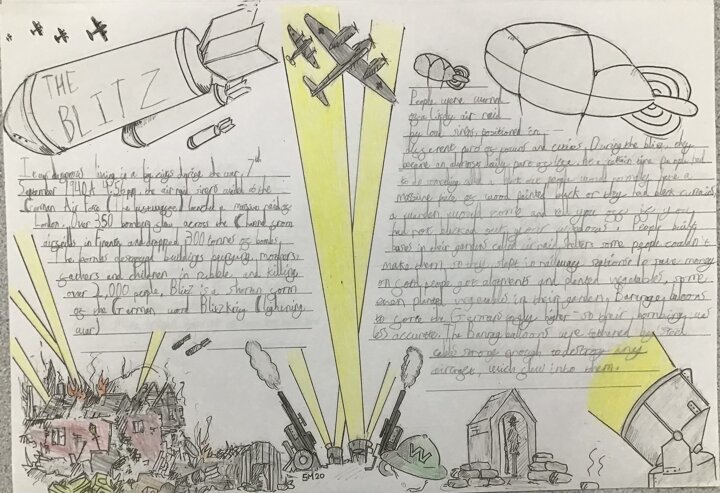 THE
BLITZ
living in a big city during the war, 7th
September 1940 At 4:56pm, the air raid sirens to the
German Air force launched a massive raid on
London. Over 350 bombers flew across the Channel from
airfields in France and dropped 300 tonnes of bombs.
The bombs destroyed buildings mothers,
fathers and children in rubble and killing
over people, Blitz is a shorten form
of the German word Blitzkrieg (lightning
war)
People were warned
of a likely air raid
by loud sirens, positioned in
different part of towns and cities. During the blitz, they
became an almost daily part of life. At a certain time people had
to do something with a light people would normally have a
massive piece of wood painted black or they had black curtains,
a warden would come and tell you off if you
had not blacked out your windows. People built
bases in their gardens called air raid shelters some people couldn't
make them so they slept in railway stations to save money
on food people got allotments and planted vegetables, some
even planted vegetables in their garden, Barrage balloons
to force the German higher so their bombing was
less accurate. The Barrage balloons were tethered by steel
cable strong enough to destroy any
aircraft, which flew into them.
W
SM 20